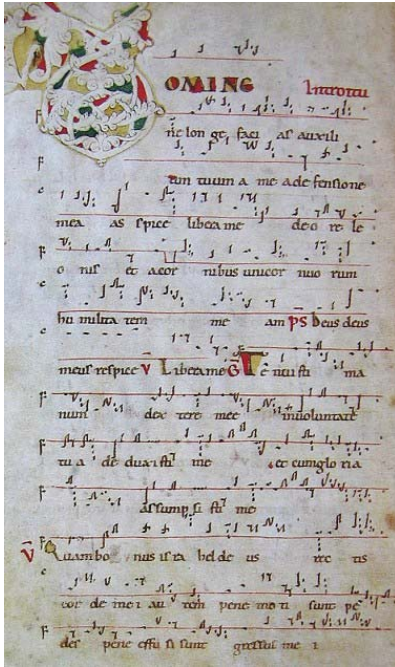 DOMINE Introitu
ne lon ge faci as auxili
um tuum a me ad defensione
mea as spice libera me de o re le
o nis et a cor nibus unicor nuo rum
hu milita tem me am ps Deus deus
meus respice v Libera me G Te nui sti ma
num dex tere mee in uoluntate
tu a de duxi sti me et cum glo ria
assump si sti me
v Quam bo nus isra hel de us rec tis
cor de me i au tem pene mo ti sunt pe
des pene effu si sunt gressus me i